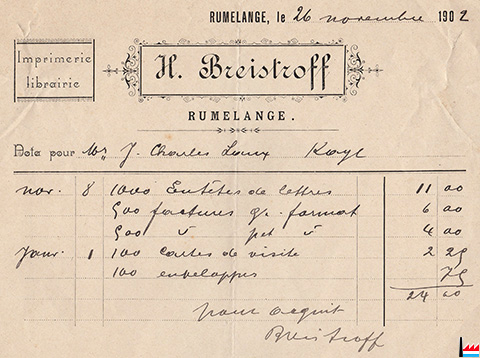 RUMELANGE, le 26 novembre 1902
Imprimerie
librairie
H. Breistroff
RUMELANGE.
Note pour Mr J. Charles Kayl
nov. 8 1000 Entêtes de lettres 11 00
500 factures gr. format 6 00
500 " pet " 4 00
Janv. 1 100 cartes de visite 2 25
100 enveloppes 75
24 00
pour acquit
Breistroff